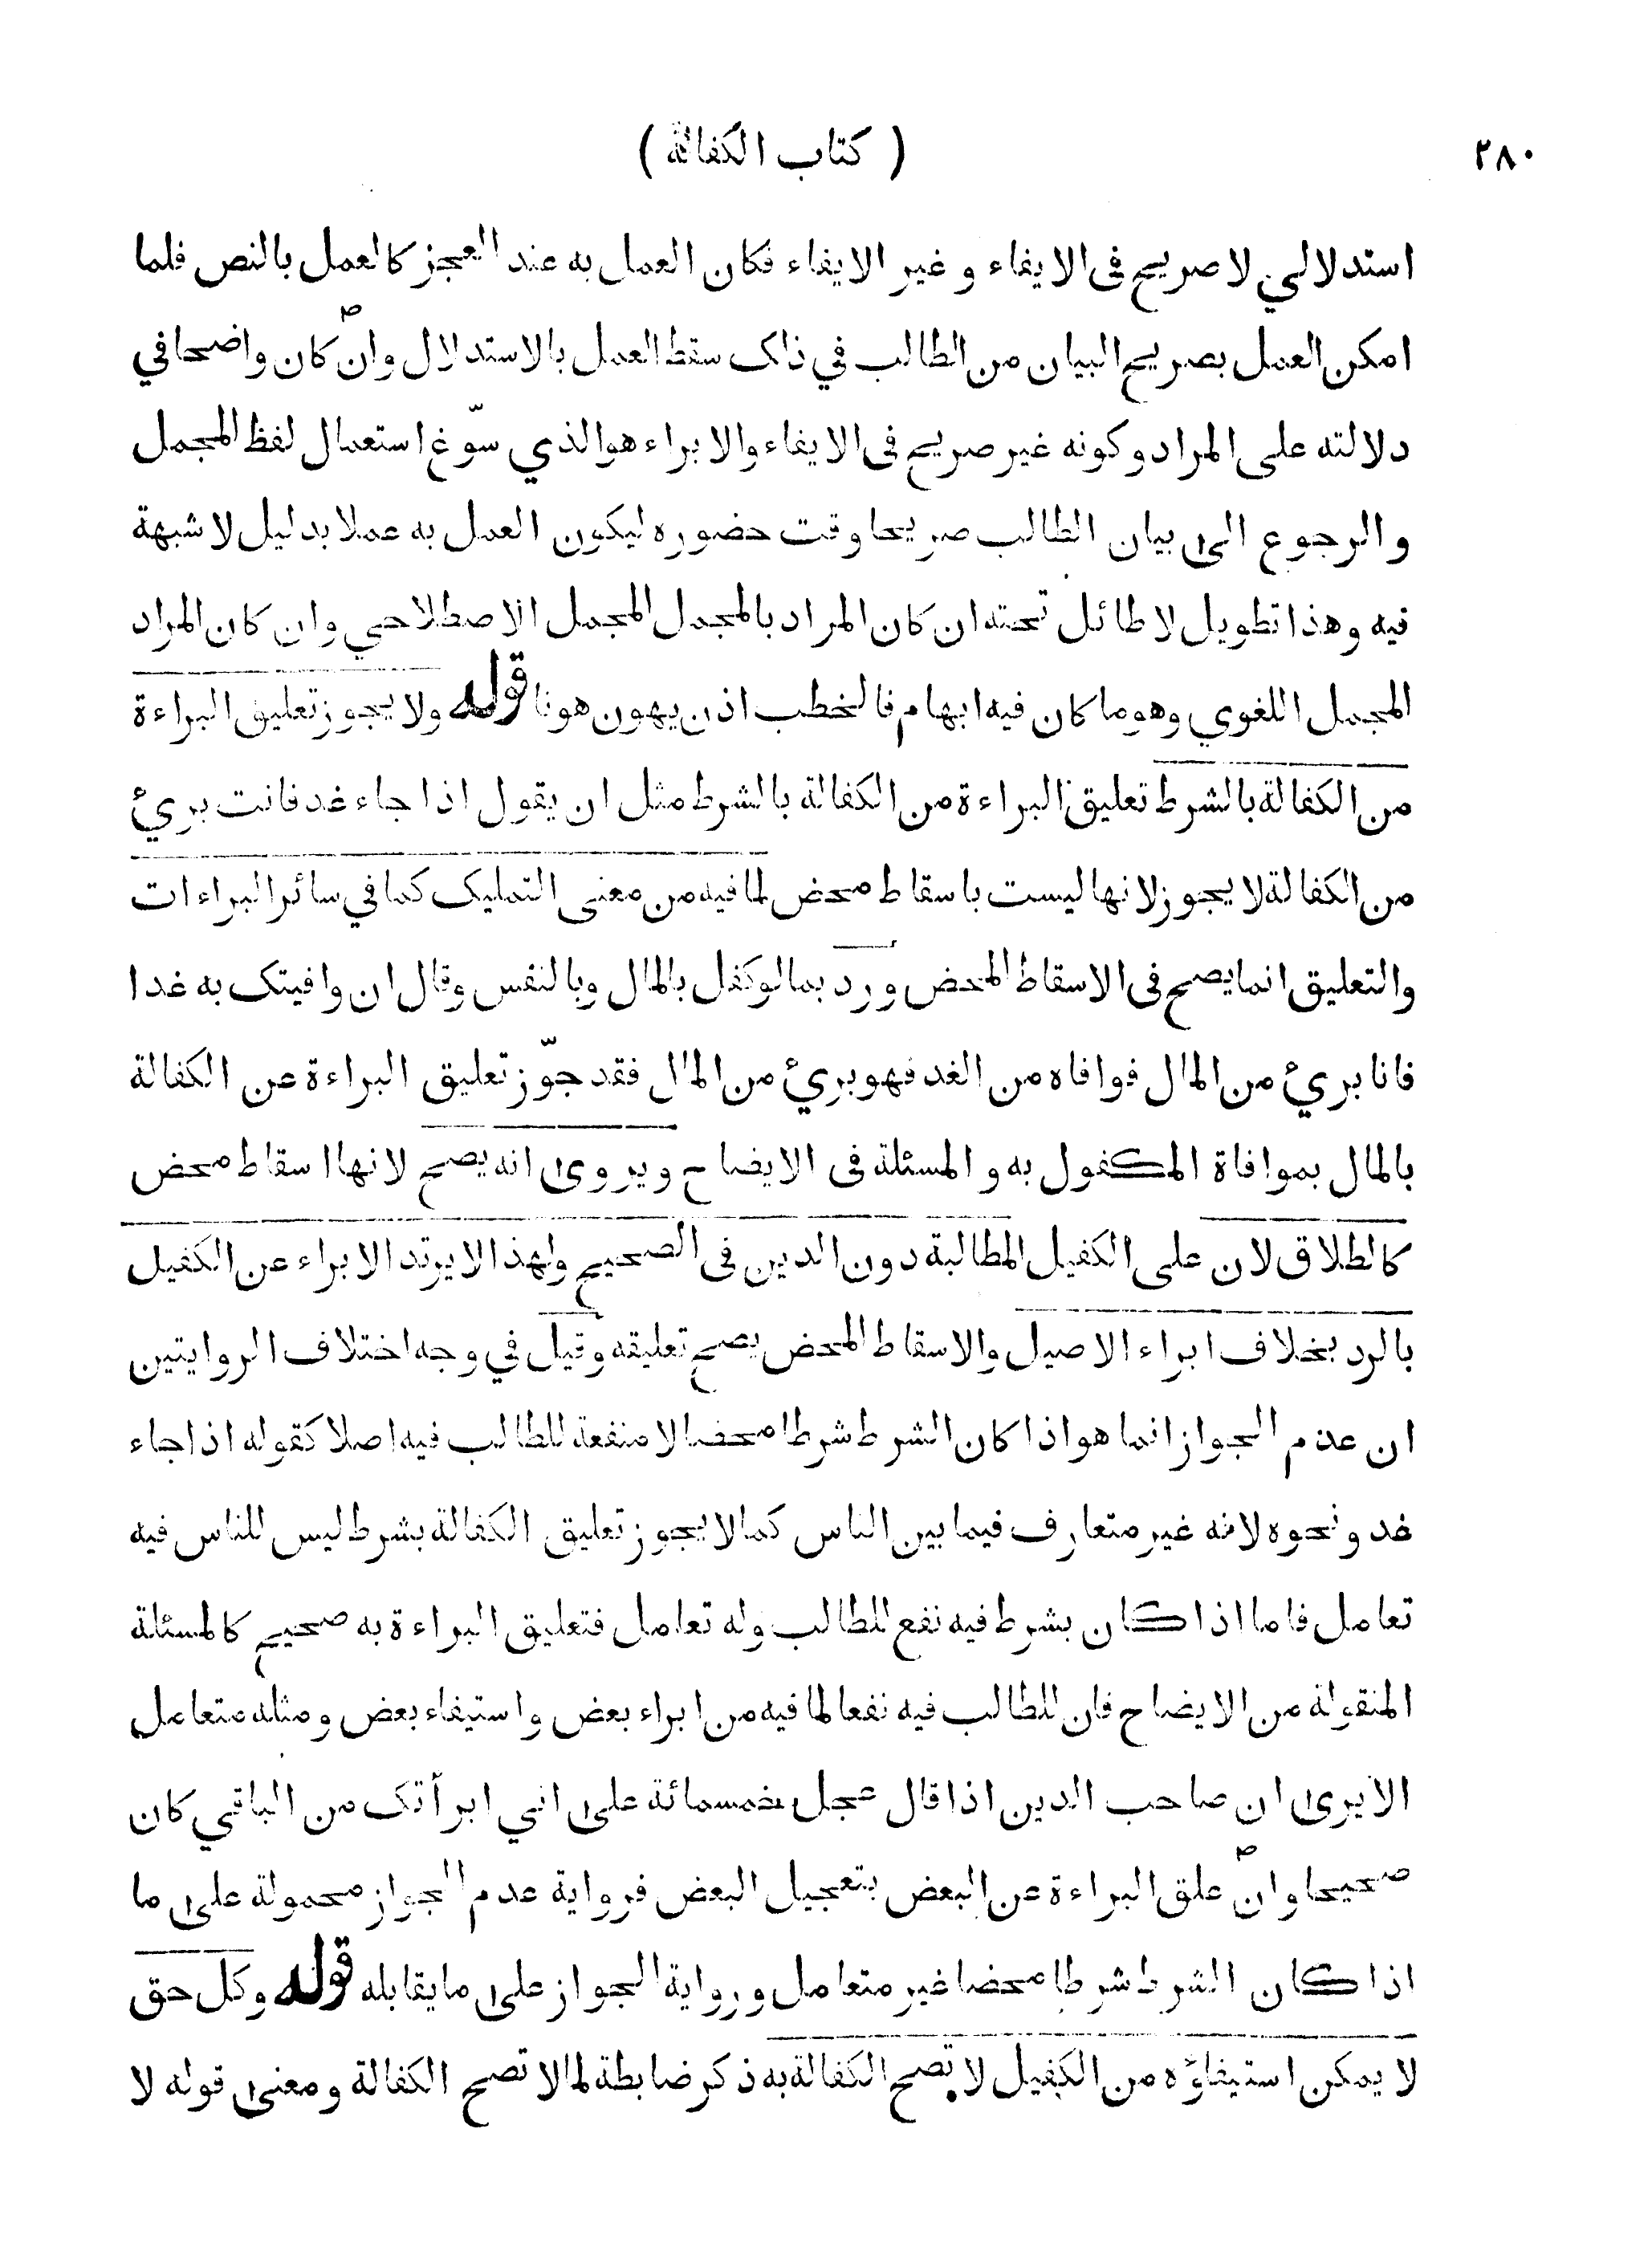 ٢٨٠ ( كتاب الكفالة )
استدلالي لا صريح فى الايفاء و غير الايفاء فكان العمل به عند العجز كالعمل بالنص فلما
امكن العمل بصريح البيان من الطالب في ذاك سقط العمل بالاستدلال وان كان واضحا في
دلالته على المراد و كونه غير صريح فى الايفاء والابراء هوالذي سوّغ استعمال لفظ المجمل
و الرجوع الى بيان الطالب صريحا وقت حضوره ليكون العمل به عملا بدليل لا شبهة
فيه وهذا تطويل لا طائل تحته ان كان المراد بالمجمل المجمل الاصطلاحي وان كان المراد
المجمل اللغوي وهو ما كان فيه ابهام فالخطب اذن يهون هونا قوله ولا يجوز تعليق البراءة
من الكفالة بالشرط تعليق البراءة من الكفالة بالشرط مثل ان يقول اذا جاء غد فانت بريئ
من الكفالة لا يجوز لانها ليست باسقاط محض لما فيه من معنى التمليك كما في سائر البراءات
والتعليق انما يصح فى الاسقاط المحض ورد بما لو كفل بالمال وبالنفس وقال ان وافيتك به غدا
فانا بريئ من المال فوافاه من الغد فهو بريئ من المال فقد جوّز تعليق البراءة عن الكفالة
بالمال بموافاة المكفول به و المسئلة فى الايضاح ويروى انه يصح لانها اسقاط محض
كالطلاق لان على الكفيل المطالبة دون الدين فى الصحيح ولهذا لا يرتد الابراء عن الكفيل
بالرد بخلاف ابراء الاصيل والاسقاط المحض يصح تعليقه وقيل في وجه اختلاف الروايتين
ان عدم الجواز انما هو اذا كان الشرط شرطا محضا لا منفعة للطالب فيه اصلا كقوله اذا جاء
غد ونحوه لانه غير متعارف فيما بين الناس كما لا يجوز تعليق الكفالة بشرط ليس للناس فيه
تعامل فاما اذا كان بشرط فيه نفع للطالب وله تعامل فتعليق البراءة به صحيح كالمسئلة
المنقولة من الايضاح فان للطالب فيه نفعا لما فيه من ابراء بعض واستيفاء بعض ومثله متعامل
الا يرى ان صاحب الدين اذا قال عجل بخمسمائة على اني ابرأتك من الباقي كان
صحيحا وان علق البراءة عن البعض بتعجيل البعض فرواية عدم الجواز محمولة على ما
اذا كان الشرط شرطا محضا غير متعامل ورواية الجواز على ما يقابله قوله وكل حق
لا يمكن استيفاؤه من الكفيل لا تصح الكفالة به ذكر ضابطة لما لا تصح الكفالة ومعنى قوله لا